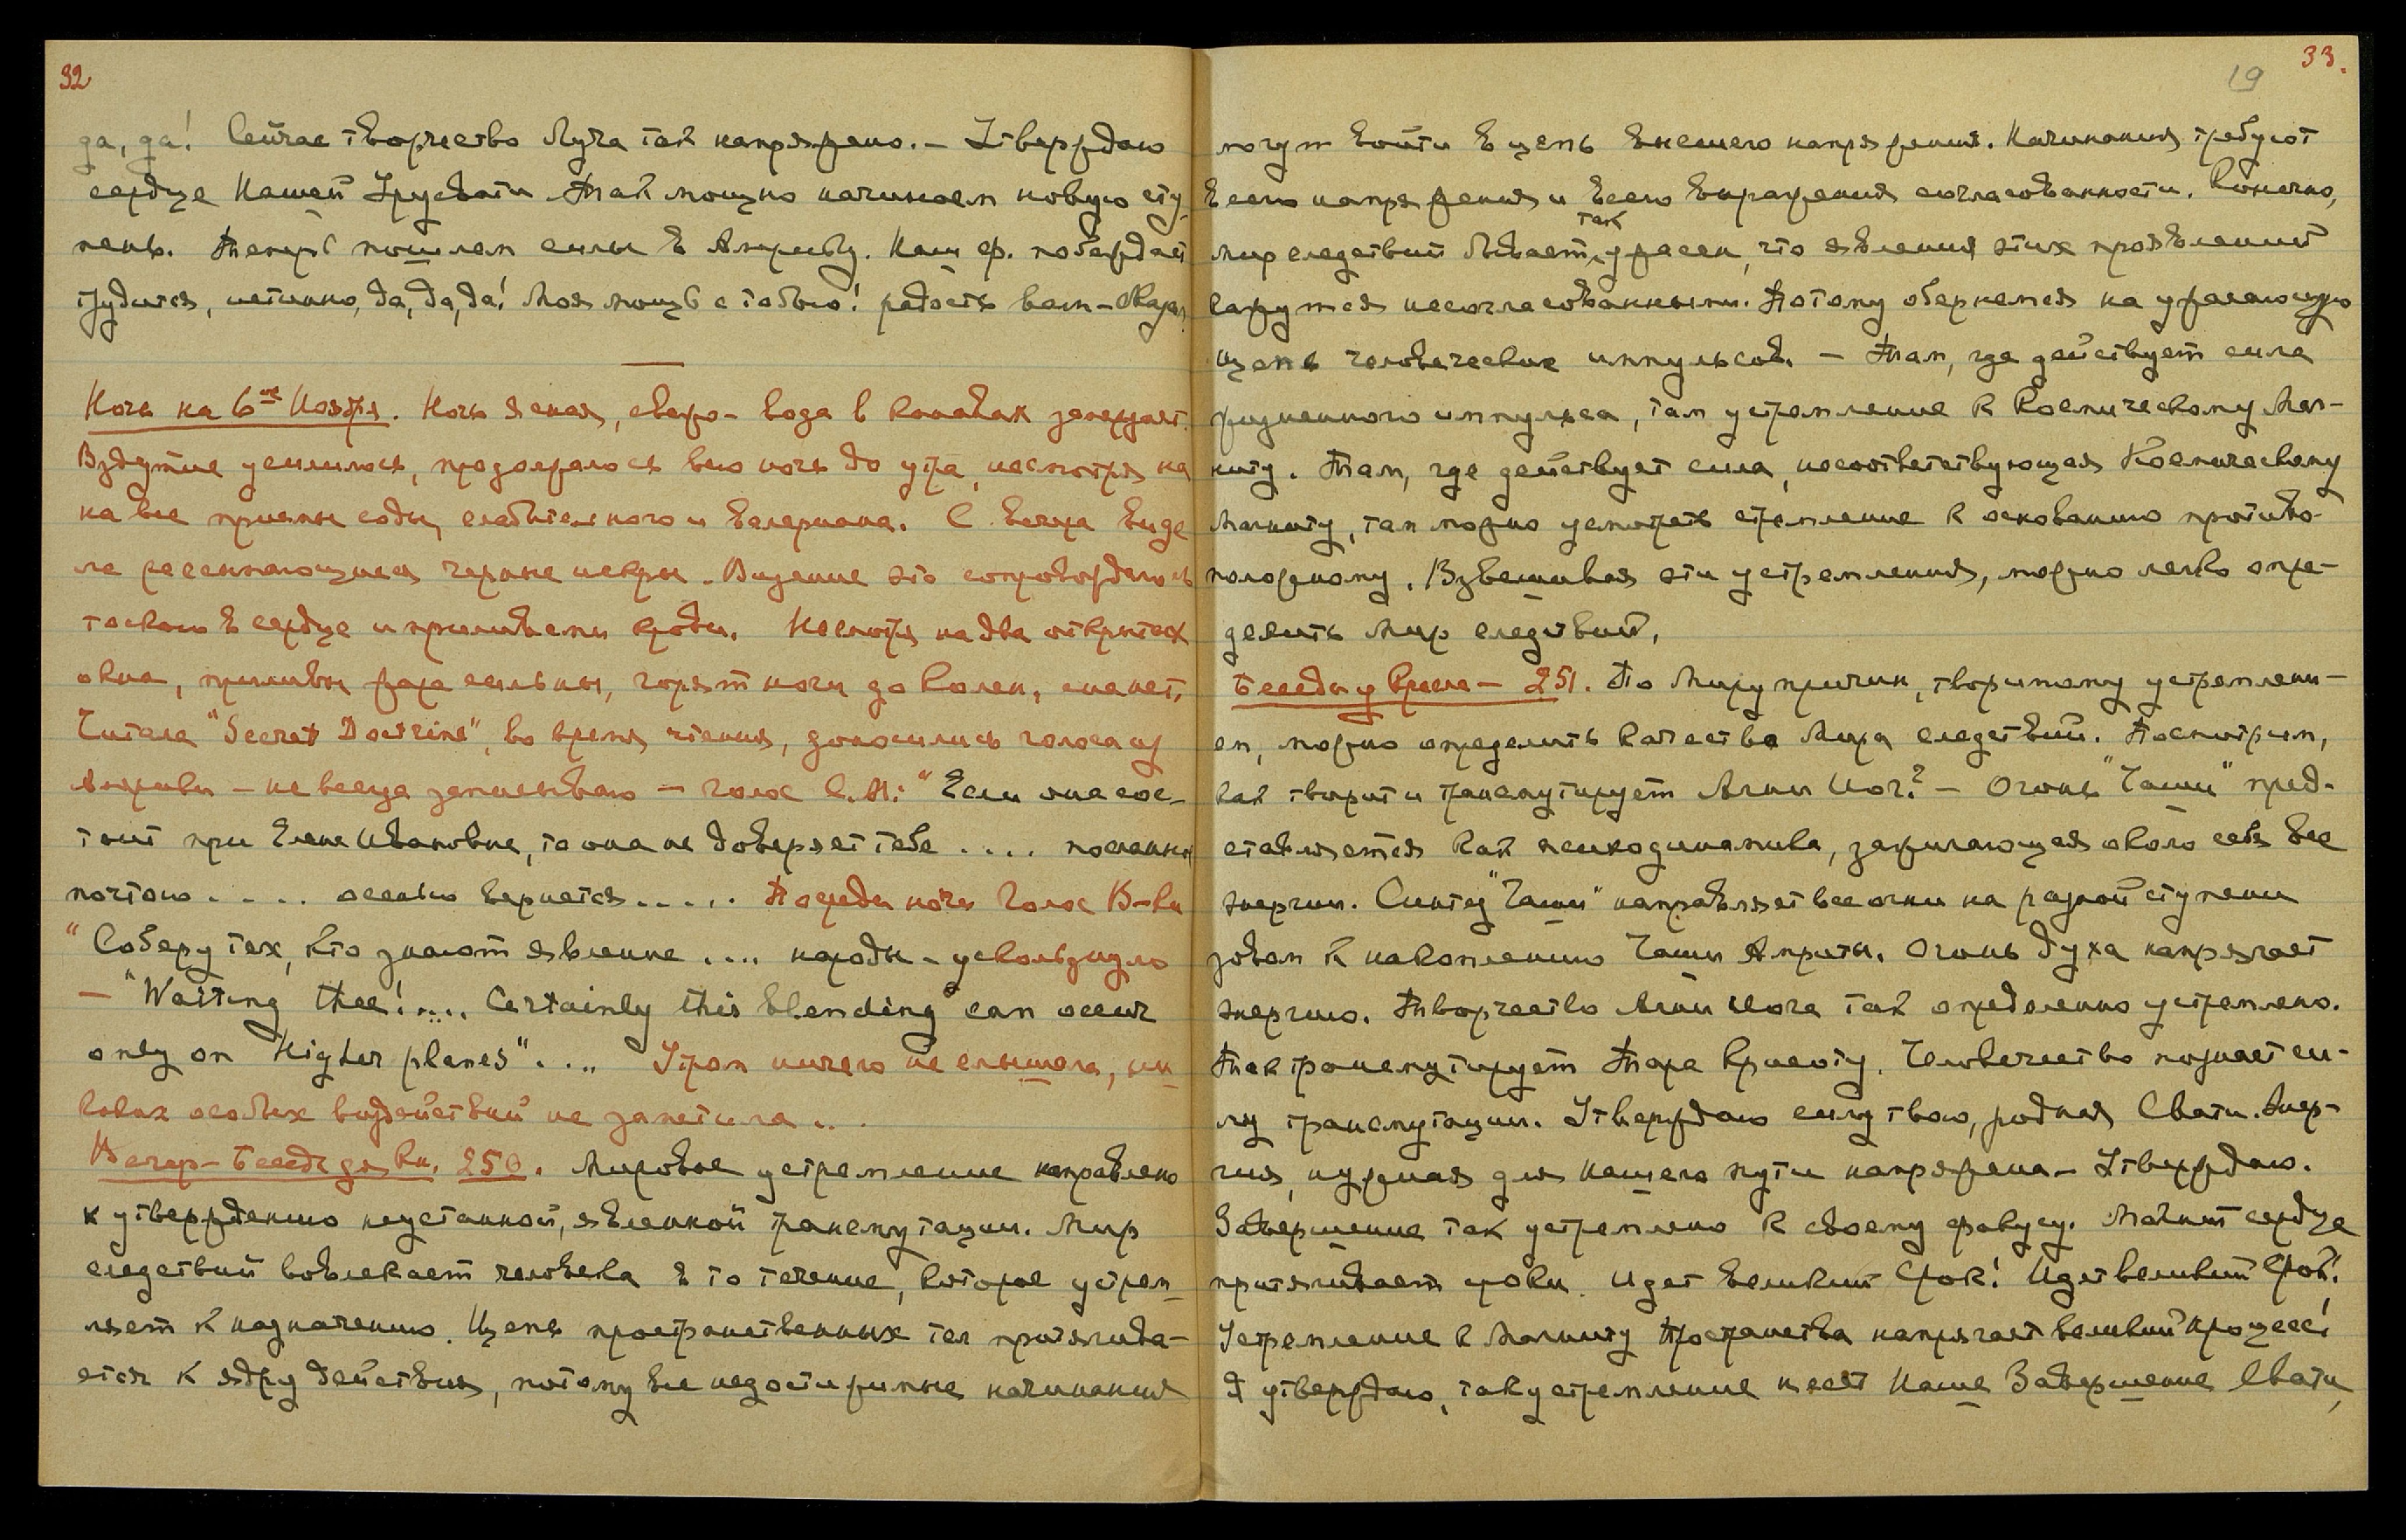 32
да, да! Сейчас творчество Луча так напряжено. – Утверждаю
сердце Нашей Урусвати. Так мощно начинаем новую сту-
пень. Теперь пошлем силы в Америку. Наш ф. побеждает
трудится, истинно, да, да, да! Моя мощь с тобою! радость вам –
Ночь на 6ое Ноября. Ночь ясная, свежо – вода в канавах замерзает.
Вздутие усилилось, продолжалось всю ночь до утра, несмотря на
на все приемы соды, слабительного и валериана. С вечера виде
ла рассыпающиеся черные искры. Видение это сопровождалось
тоскою в сердце и приливами крови. Несмотря на два открытых
окна, приливы жара сильны, горят ноги до колен,
Читала "Secret Doctrine", во время чтения, доносились голоса из
Америки – не всегда записываю – голос С.М: "Если она сос-
тоит при Елене Ивановне, то она не доверяет тебе .... послания
почтою .... осенью вернется ..... Посреди ночи Голос В-ки
"Соберу тех, кто знают явление .... народы – ускользнуло
– "Waiting thee!.... Certainly this blending can occur
only on Higher planes" ... Утром ничего не слышала, ни-
каких особых воздействий не заметила ...
Вечер – Беседа дя Вл. 250. Мировое устремление направлено
к утверждению неустанной, явленной трансмутации. Мир
следствий вовлекает человека в то течение, которое устрем-
ляет к назначению. Цепь пространственных тел притягива-
ется к ядру действия, потому все недостижимые начинания
19
33.
могут войти в цепь внешнего напряжения. Начинания требуют
всего напряжения и всего выражения согласованности. Конечно,
так
мир следствий бывает, ужасен, что явления этих проявлений
кажутся несогласованными. Потому обернемся на ужасающую
цепь человеческих импульсов. – Там, где действует сила
жизненного импульса, там устремление к Космическому Маг-
ниту. Там, где действует сила, несоответствующая Космическому
Магниту, там можно усмотреть стремление к основанию противо-
положному. Взвешивая эти устремления, можно легко опре-
делить Мир следствий.
Беседы у Кресла – 251. По Миру причин, творимому устремлени-
ем, можно определить качества Мира следствий. Посмотрим,
как творит и трансмутирует Агни Йог? – Огонь "Чаши" пред-
ставляется как психодинамика, зажигающая около себя все
энергии. Синтез "Чаши" направляет все огни на разной ступени
зовом к накоплению Чаши Амриты. Огонь духа напрягает
энергию. Творчество Агни Йога так определенно устремлено.
Так трансмутирует Тара Красоту. Человечество познает си-
лу трансмутации. Утверждаю силу твою, родная Свати. Энер-
гия, нужная для нашего пути напряжена – Утверждаю.
Завершение так устремлено к своему фокусу. Магнит сердца
притягивает сроки. Идет великий Срок! Идет великий Срок!
Устремление к Магниту Пространства напрягает великий процесс!
Я утверждаю, так устремление несет Наше Завершение Свати,